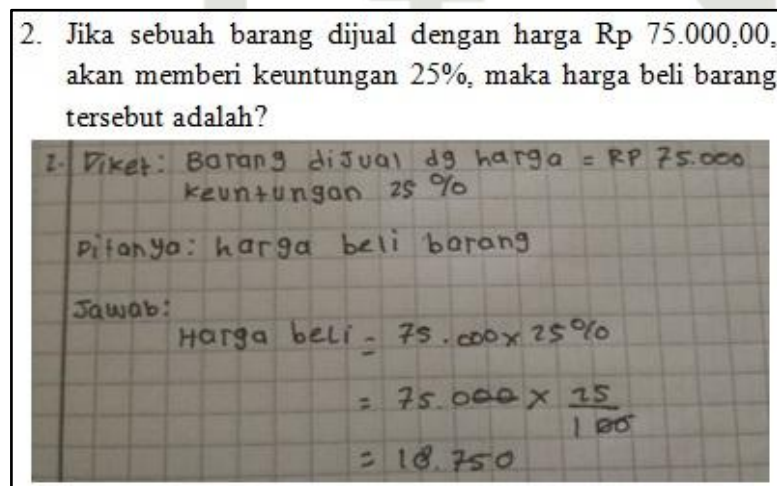 2. Jika sebuah barang dijual dengan harga Rp 75.000,00,
akan memberi keuntungan 25%, maka harga beli barang
tersebut adalah?
2. Diket: Barang dijual dg harga = RP 75.000
keuntungan 25 %
Ditanya: harga beli barang
Jawab:
Harga beli = 75.000 x 25%
= 75.000 x 25
100
= 18.750